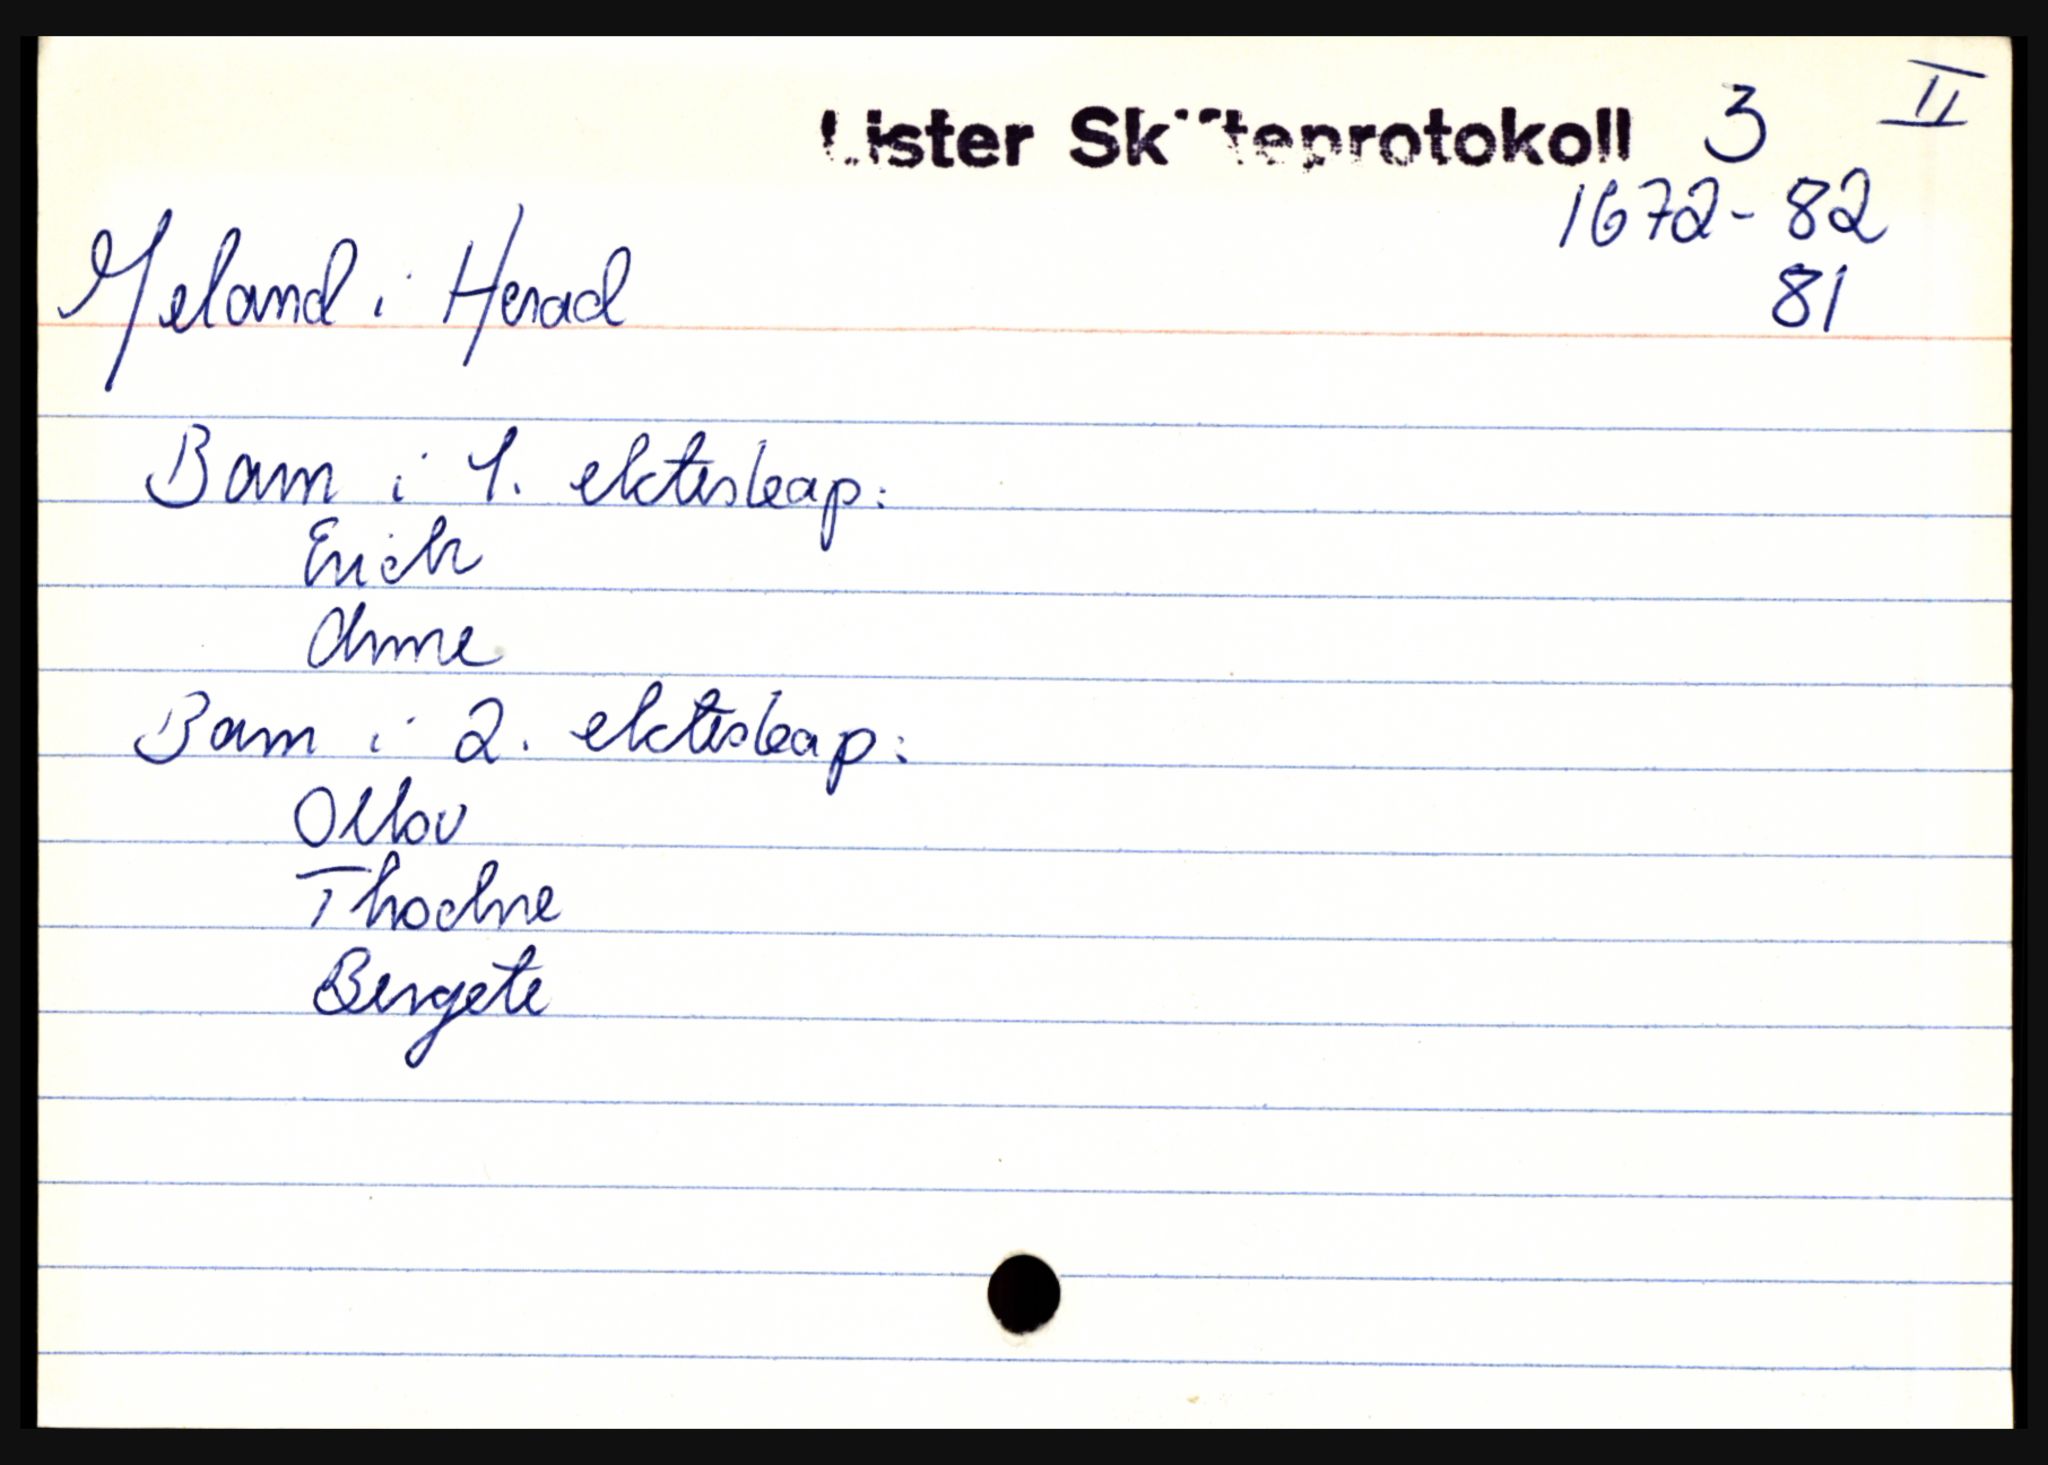 Lister Skifteprotokoll 3 II
1672-82
81
Meland i Herad
Barn i 1. ekteskap:
Erich
Anne
Barn i 2. ekteskap:
Ollov
Thodne
Bergete